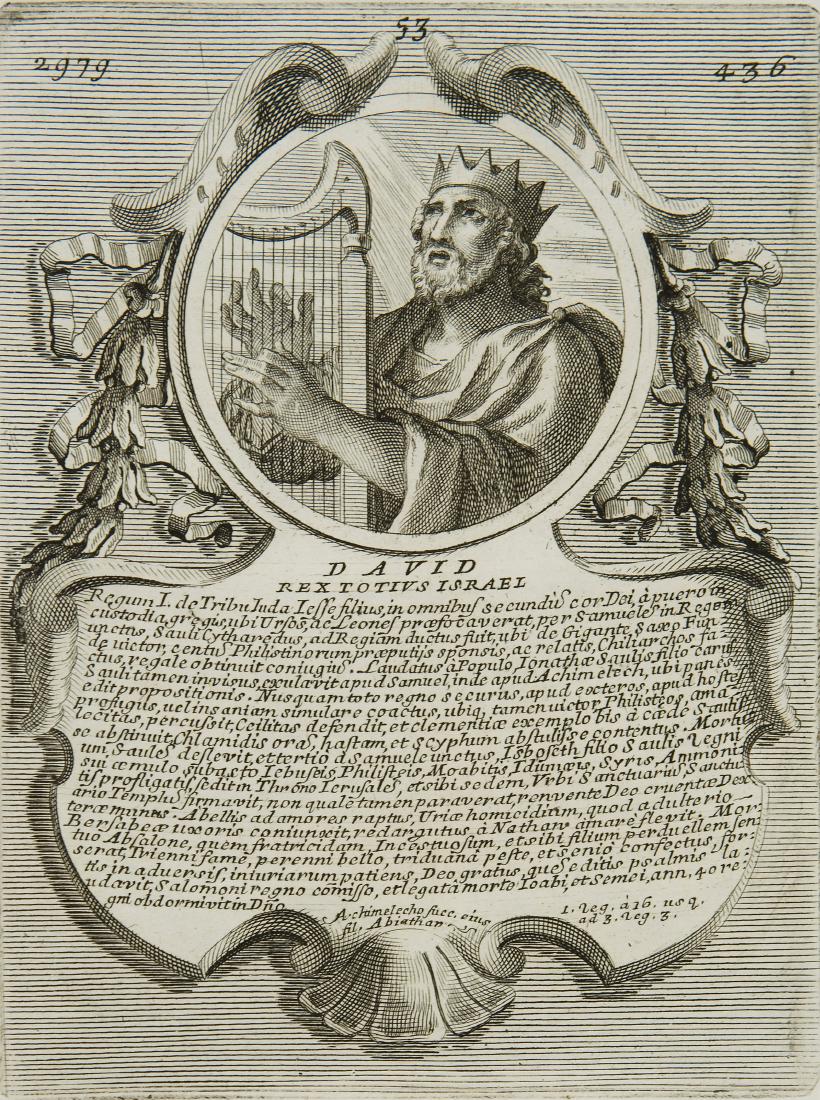 53
2979
436
DAVID
REX TOTIVS ISRAEL
Regum I. de Tribu Iuda Iesse filius, in omnibus secundũ cor Dei, à puero in
custodia gregis, ubi Ursos, ac Leones præfocaverat, per Samuelẽ in Regem
unctus, Sauli Cytharedus, ad Regiam ductus fuit, ubi de Gigante, Saxo Fun
de victor, centũ Philistinorum præputijs sponsis, ac relatis, Chiliarchos fa
ctus, regale obtinuit coniugiũ. Laudatus à Populo, Ionathæ Saulis filio carus
Sauli tamen invisus, exulavit apud Samuel, inde apud Achimelech, ubi panes
edit propositionis. Nusquam toto regno securus, apud exteros, apud hostes
profugus, vel insaniam simulare coactus, ubiq, tamen victor Philisteos, ama
locitas, percussit, Ceilitas defendit, et clementiæ exemplo bis à cæde Saulis
se abstinuit, Chlamidis oras, hastam, et Scyphum abstulisse contentus. Mortu
um, Saulẽ deflevit, et tertio d Samuele unctus, Isboseth filio Saulis Regni
sui æmulo subacto Iebuseis, Philisteis, Moabitis, Idumæis, Syris, Ammoni
tis profligatis, sedit in Throno Icrusalẽ, et sibi sedem, Vrbi Sanctuariũ, Sanctu
ario Templũ firmavit, non qualẽ tamen paraverat, renvente Deo cruentæ Dex
teræ munus. A bellis ad amores raptus, Uriæ homicidium, quod adulterio
Bersabeæ uxoris coniunxit, redargutus à Nathan amare flevit. Mor
tuo Absalone, quem fratricidam, Incestuosium, et sibi filium perduellem sen
serat, Trienni fame, perenni bello, triduana peste, et senio confectus, for
tis in adversis, iniuriarum patiens, Deo gratus, quẽ editis psalmis la
udavit, Salomoni regno cõmisso, et legata morte Ioabi, et Semei, ann, 40 re
gni obdormivit in Dño.
Achimelecho succ. eius
fil. Abiathar
1. Reg. à 16. usq.
ad 3. Reg. 3.